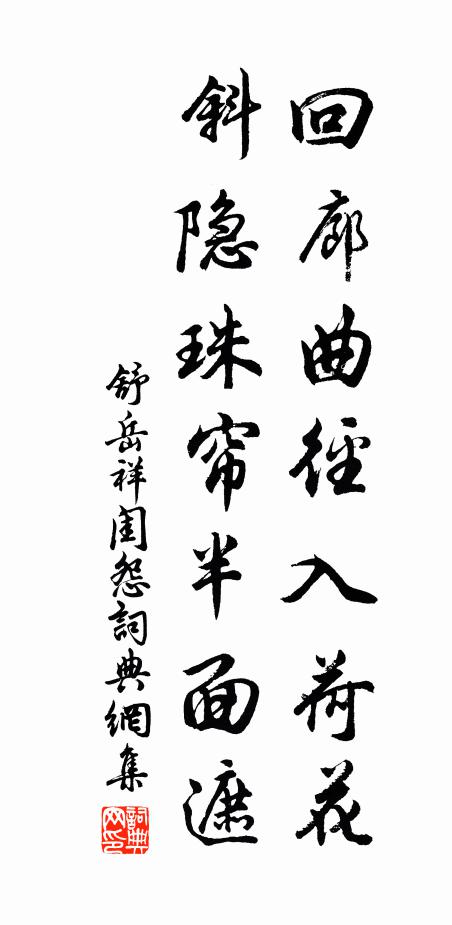 回廊曲徑入荷花
斜隐珠帘半面遮
舒岳祥闺怨詞典網集
詞典网印